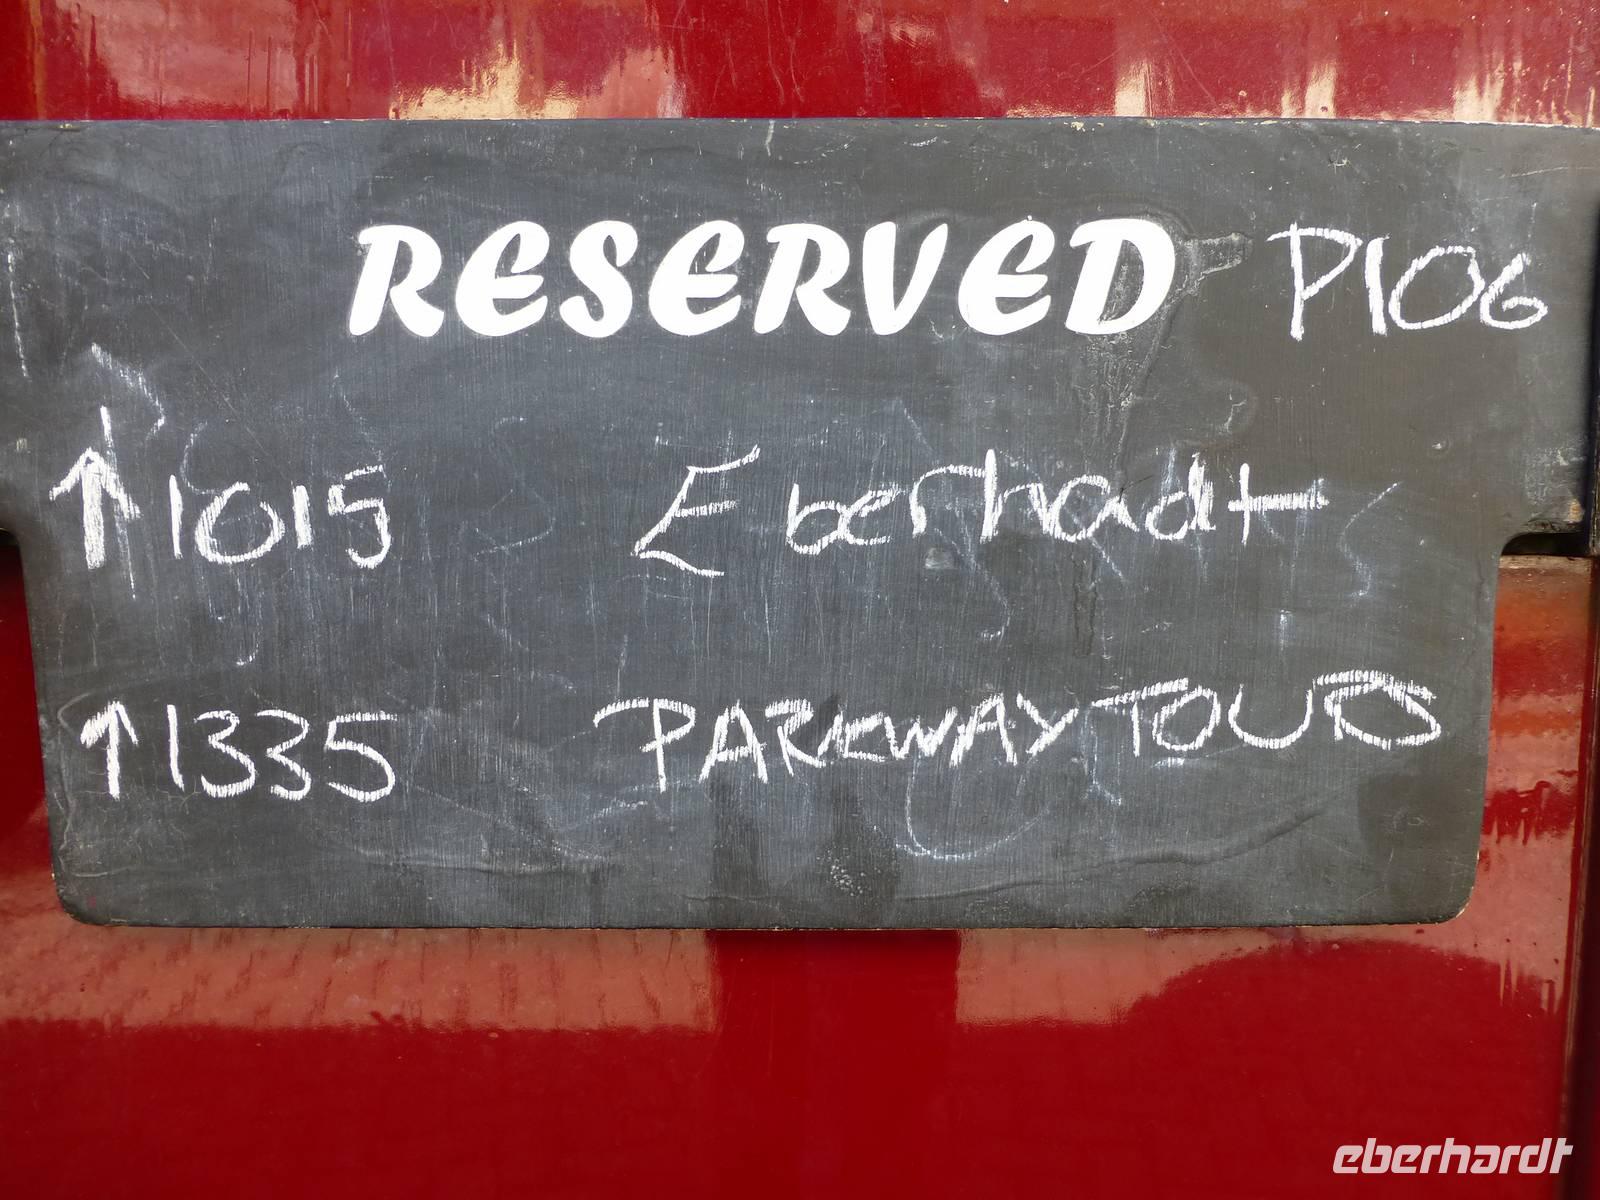 RESERVED P106
↑ 1015 Eberhadt
↑ 1335 PARKWAY TOURS
eberhardt